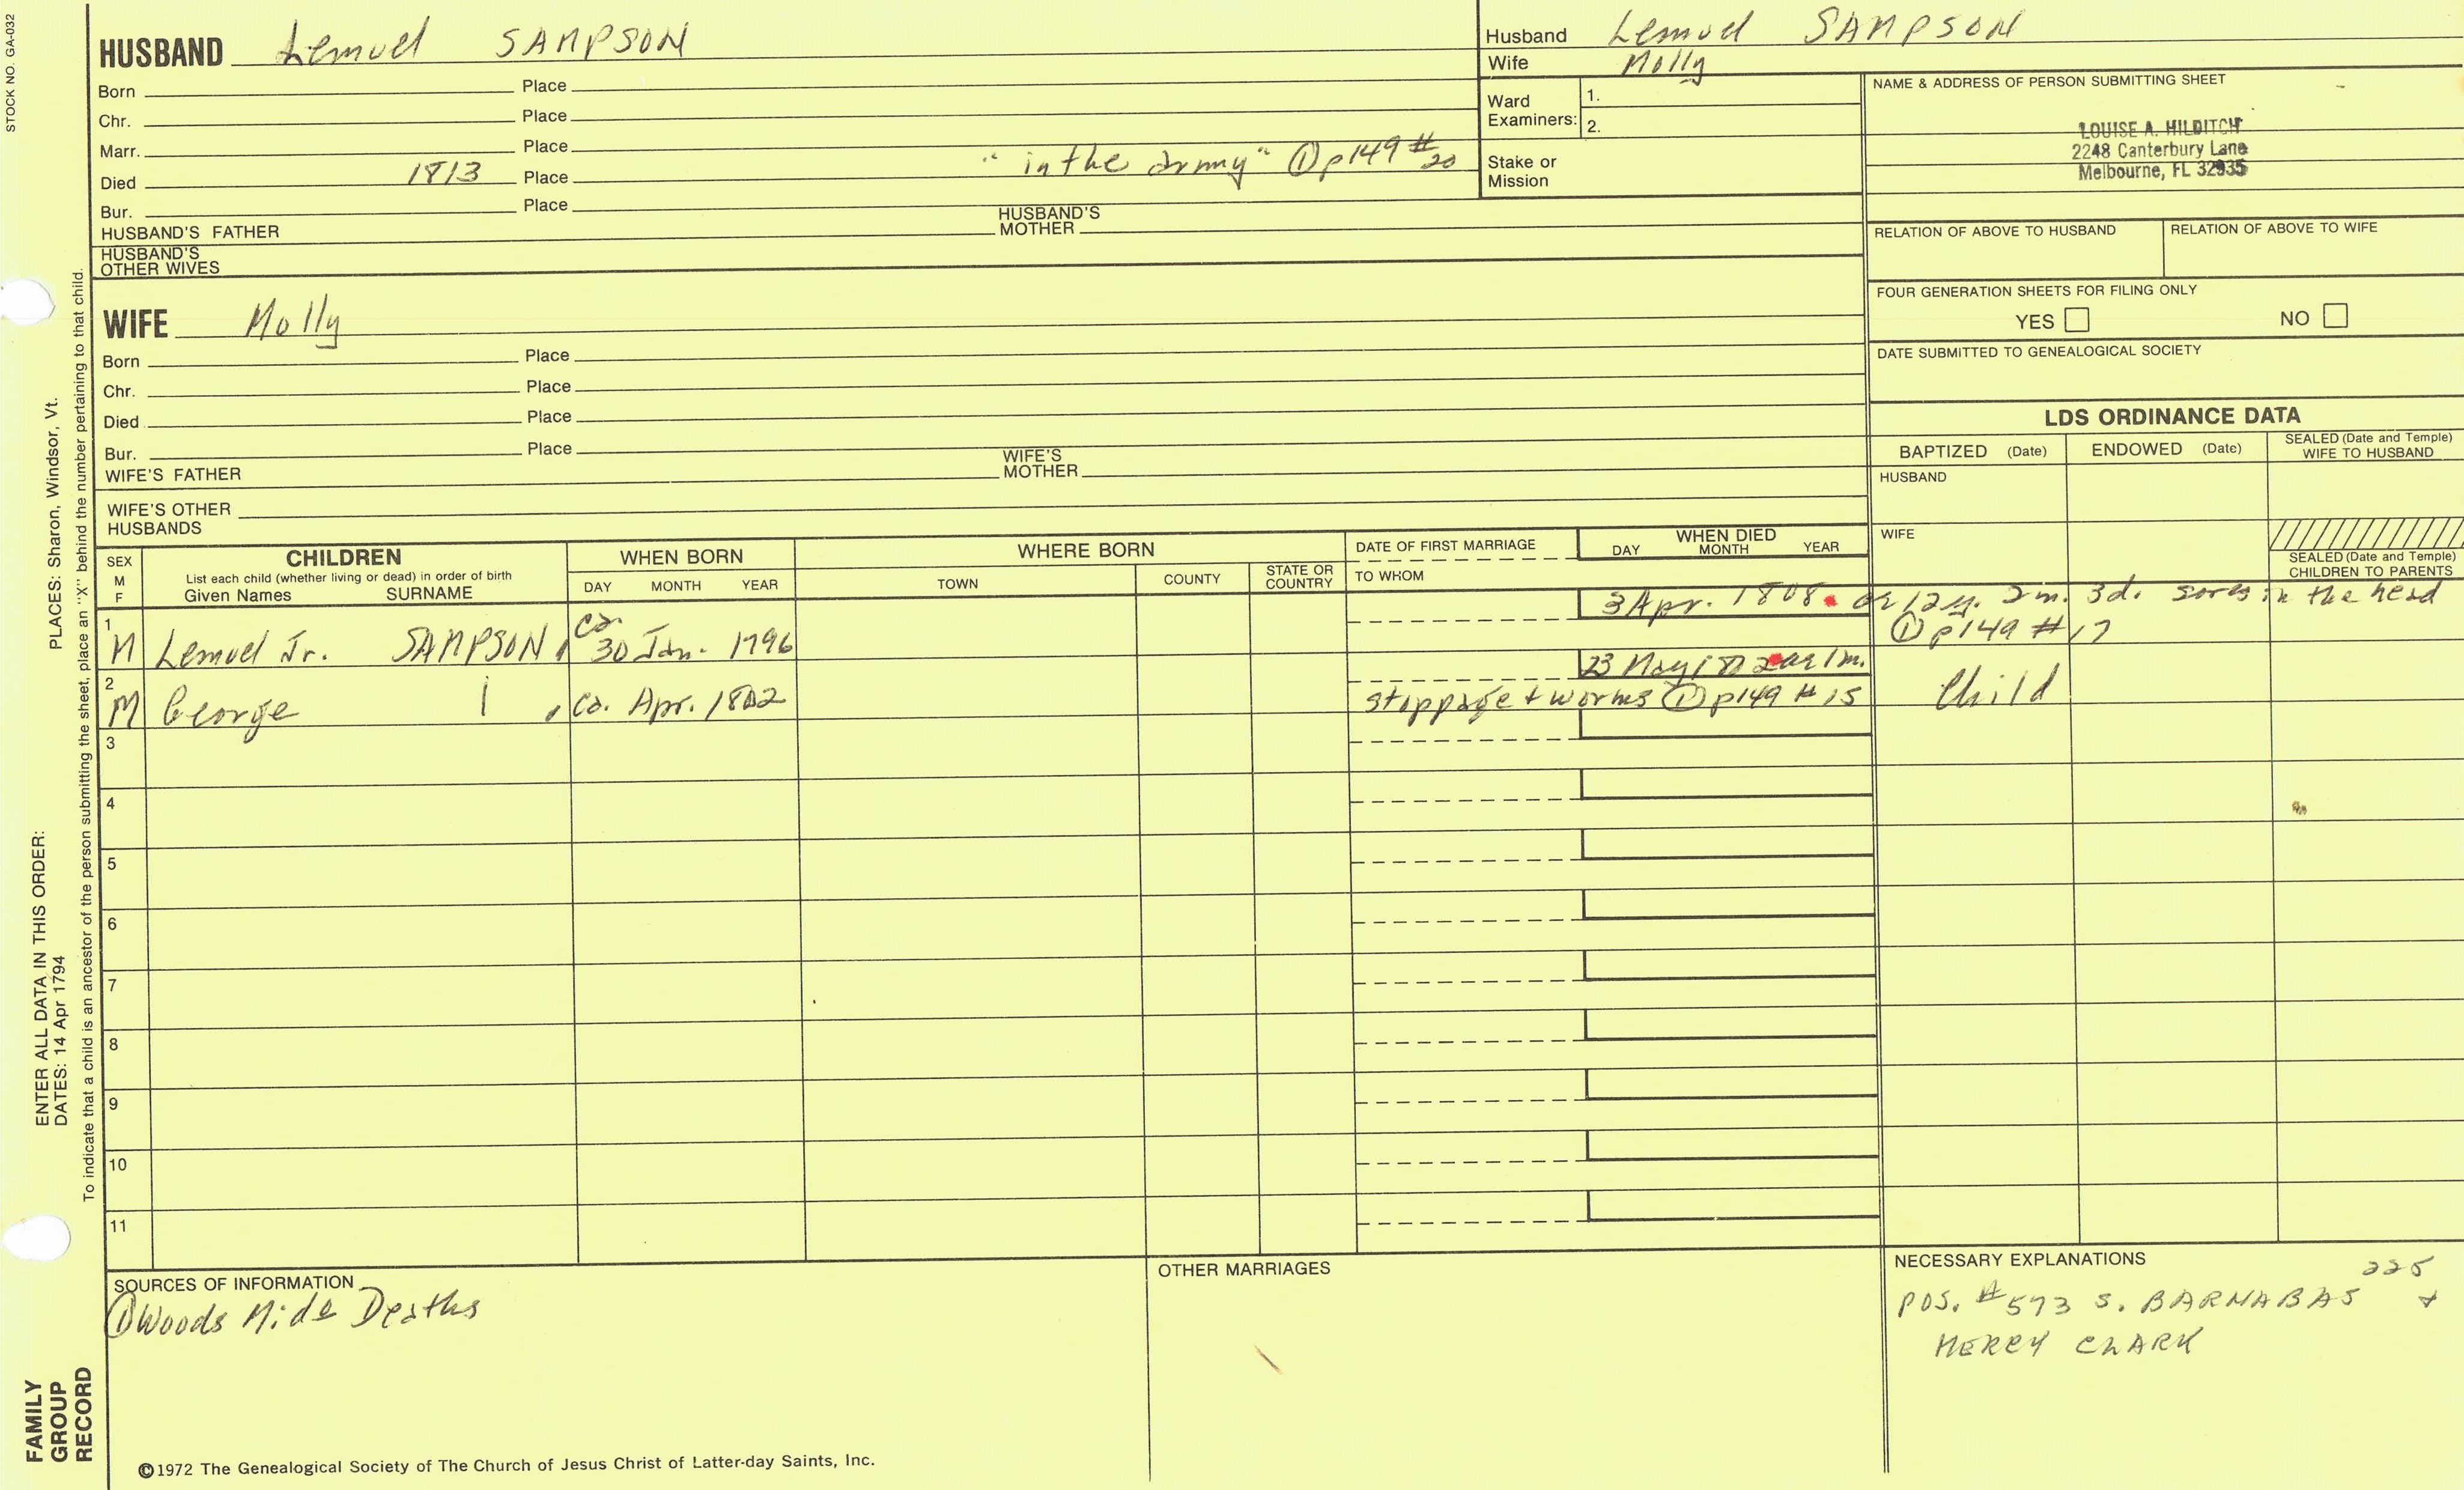 STOCK NO. GA-032
HUSBAND Lemuel SAMPSON
Born Place
Chr. Place
Marr. Place
Died 1813 Place "in the army" ① p149 #20
Bur. Place
HUSBAND'S FATHER HUSBAND'S MOTHER
HUSBAND'S OTHER WIVES
Husband Lemuel SAMPSON
Wife Molly
Ward Examiners: 1.
2.
Stake or Mission
NAME & ADDRESS OF PERSON SUBMITTING SHEET
LOUISE A. HILDITCH
2248 Canterbury Lane
Melbourne, FL 32935
RELATION OF ABOVE TO HUSBAND RELATION OF ABOVE TO WIFE
FOUR GENERATION SHEETS FOR FILING ONLY
YES NO
DATE SUBMITTED TO GENEALOGICAL SOCIETY
WIFE Molly
Born Place
Chr. Place
Died Place
Bur. Place
WIFE'S FATHER WIFE'S MOTHER
WIFE'S OTHER HUSBANDS
LDS ORDINANCE DATA
BAPTIZED (Date) ENDOWED (Date) SEALED (Date and Temple) WIFE TO HUSBAND
HUSBAND
WIFE
SEALED (Date and Temple) CHILDREN TO PARENTS
SEX M F
CHILDREN
List each child (whether living or dead) in order of birth
Given Names SURNAME
WHEN BORN
DAY MONTH YEAR
WHERE BORN
TOWN COUNTY STATE OR COUNTRY
DATE OF FIRST MARRIAGE
TO WHOM
WHEN DIED
DAY MONTH YEAR
3 Apr. 1808 ae 12y. 2m. 3d. sores in the head
1 M Lemuel Jr. SAMPSON ca. 30 Jan. 1796 ① p149 #17
23 May 1802 ae 1m.
2 M George ca. Apr. 1802 stoppage + worms ① p149 #15 Child
3
4
5
6
7
8
9
10
11
SOURCES OF INFORMATION
① Woods Mide Deaths
OTHER MARRIAGES
NECESSARY EXPLANATIONS
225
POS. #573 S. BARNABAS +
MERCY CLARK
©1972 The Genealogical Society of The Church of Jesus Christ of Latter-day Saints, Inc.
FAMILY GROUP RECORD
ENTER ALL DATA IN THIS ORDER:
DATES: 14 Apr 1794 PLACES: Sharon, Windsor, Vt.
To indicate that a child is an ancestor of the person submitting the sheet, place an "X" behind the number pertaining to that child.